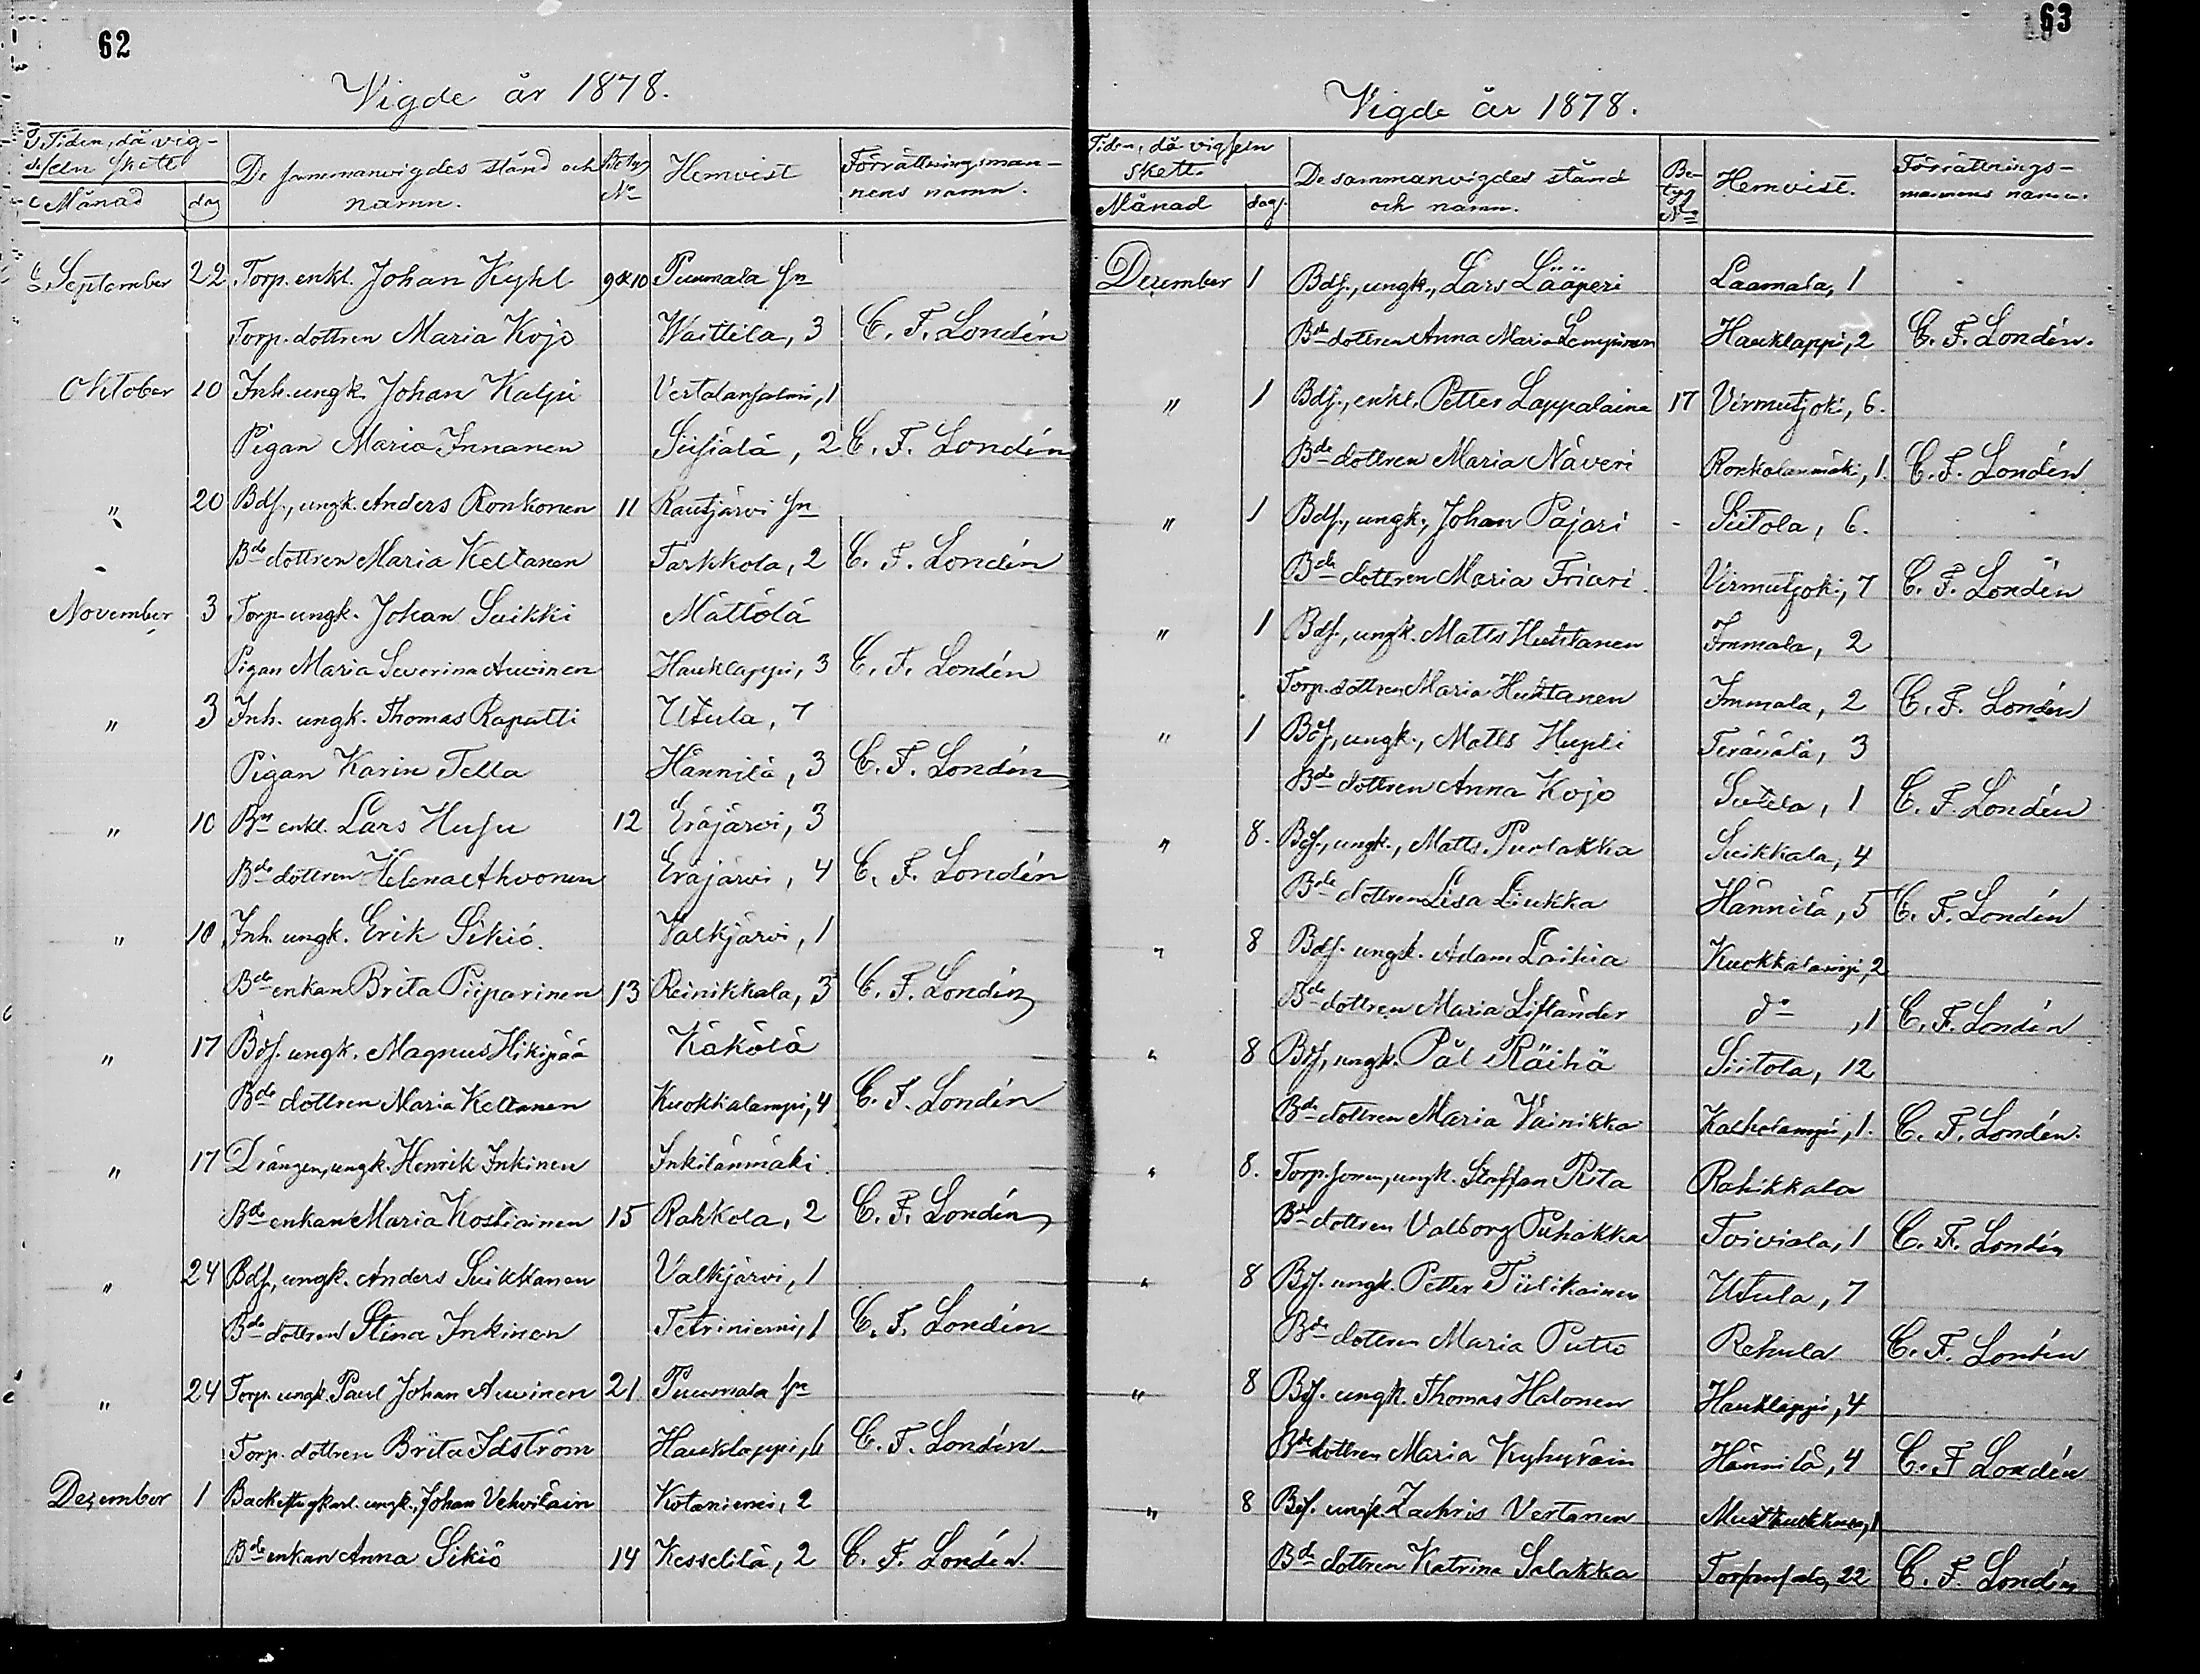 62
Vigde år 1878.
Tiden, då vig-
seln skett
Månad dag
De sammanvigdes stånd och
namn.
Betyg
No
Hemvist
Förrättningsman-
nens namn.
September 22 Torp. enkl. Johan Kyhl 9 & 10 Puumala sn
Torp. dottren Maria Kojo Waittila, 3 C. F. Londén
Oktober 10 Inh. ungk. Johan Kalpi Vertalansalmi, 1
Pigan Maria Innanen Susiala, 2 C. F. Londén
" 20 Bds., ungk. Anders Ronkonen 11 Rautjärvi sn
Bde dottren Maria Keltanen Tarkkola, 2 C. F. Londén
November 3 Torp. ungk. Johan Suikki Mättölä
Pigan Maria Severina Auvinen Hauklappi, 3 C. F. Londén
" 3 Inh. ungk. Thomas Rapatti Utula, 7
Pigan Karin Tella Hännilä, 3 C. F. Londén
" 10 Bn enkl. Lars Husu 12 Eräjärvi, 3
Bde dottren Helena Ahvonen Eräjärvi, 4 C. F. Londén
" 10 Inh. ungk. Erik Sikiö. Valkjärvi, 1
Bde enkan Brita Piiparinen 13 Reinikkala, 3 C. F. Londén
" 17 Bds. ungk. Magnus Hikipää Käkölä
Bde dottren Maria Keltanen Kuokkalampi, 4 C. F. Londén
" 17 Drängen, ungk. Henrik Inkinen Inkilänmäki
Bde enkan Maria Kostiainen 15 Rahkola, 2 C. F. Londén
" 24 Bds, ungk. Anders Suikkanen Valkjärvi, 1
Bde dottren Stina Inkinen Tetriniemi, 1 C. F. Londén
" 24 Torp. ungk. Paul Johan Auvinen 21 Puumala sn
Torp. dottren Brita Idström Hauklappi, 6 C. F. Londén
Dezember 1 Backstugkarl. ungk., Johan Vehviläin Kotaniemi, 2
Bde enkan Anna Sikiö 14 Kesselilä, 2 C. F. Londén.
63
Vigde år 1878.
Tiden, då vigseln
skett.
Månad dag.
De sammanvigdes stånd
och namn.
Be-
tyg
No
Hemvist.
Förrättnings-
mannens namn.
Dezember 1 Bds., ungk., Lars Lääperi Laamala, 1
Bde dottren Anna Maria Lempinen Hauklappi, 2 C. F. Londén.
" 1 Bds., enkl. Petter Lappalaine 17 Virmutjoki, 6.
Bde dottren Maria Näveri Ronkalanmäki, 1. C. F. Londén
" 1 Bds., ungk., Johan Pajari - Siitola, 6.
Bde dottren Maria Friari. Virmutjoki, 7 C. F. Londén
" 1 Bds., ungk. Matts Huhtanen Immala, 2
Torp. dottren Maria Huhtanen Immala, 2 C. F. Londén
" 1 Bds, ungk., Matts Hupli Teräsälä, 3
Bde dottren Anna Kojo Sutela, 1 C. F. Londén
" 8. Bds., ungk., Matts Puolakka Suikkala, 4
Bde dottren Lisa Liukka Hännilä, 5 C. F. Londén
" 8 Bds. ungk. Adam Laihia Kuokkalampi, 2
Bde dottren Maria Lifländer do , 1 C. F. Londén
" 8 Bds, ungk. Pål Räihä Siitola, 12
Bde dottren Maria Vainikka Kalholampi, 1. C. F. Londén.
" 8. Torp. sonen, ungk. Staffan Rita Rahikkala
Bde dottren Valborg Puhakka Toiviala, 1 C. F. Londén
" 8 Bds. ungk. Petter Tiilikainen Utula, 7
Bde dottren Maria Putto Rehula C. F. Londén
" 8 Bds. ungk. Thomas Halonen Hauklappi, 4
Bde dottren Maria Kyhyräin Hännilä, 4 C. F Londén
" 8 Bds. ungk. Zachris Vertanen
Bde dottren Katrina Salakka 22 C. F. Londén